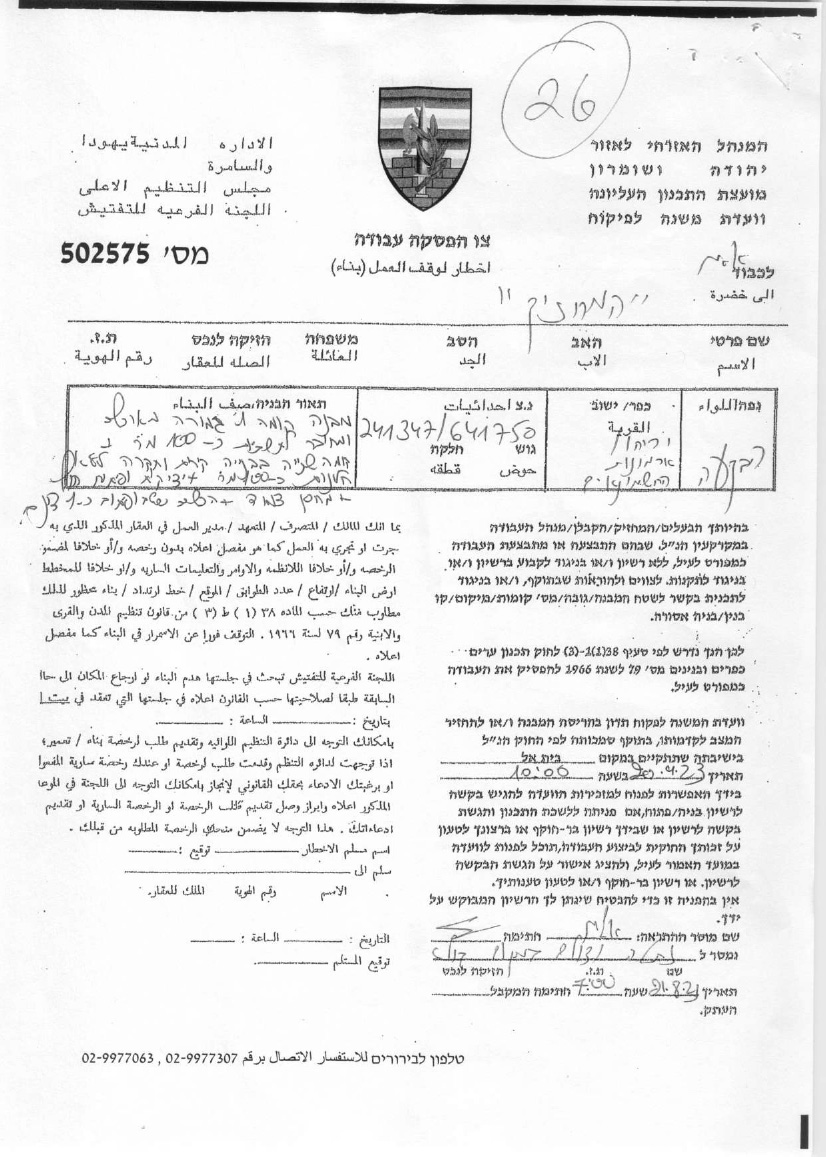 26
המנהל האזרחי לאזור
יהודה ושומרון
מועצת התכנון העליונה
וועדת משנה לפיקוח
الاداره المدنية يهودا
والسامرة
مجلس التنظيم الاعلى
اللجنة الفرعيه للتفتيش
צו הפסקה עבודה
اخطار لوقف العمل (بناء)
מס' 502575
לכבוד
الى حضرة
"המחזיק"
שם פרטי האב הסב משפחה הזיקה לנכס ת.ז.
الاسم الاب الجد العائلة الصله للعقار رقم الهوية
נפה اللواء כפר/ישוב נ.צ احداثيات תאור הבניה صيف البناء
הבקעה
القرية
יריחו
ארמונות
החשמונאים
241347/641750
גוש חלקה
حوض قطعه
בהיותך הבעלים/המחזיק/הקבלן/מנהל העבודה
במקרקעין הנ"ל, שבהם התבצעה או מתבצעת העבודה
כמפורט לעיל, ללא רשיון ו/או בניגוד לקבוע ברשיון ו/או
בניגוד לתקנות, לצווים ולהוראות שבתוקף, ו/או בניגוד
לתכנית בקשר לשטח המבנה/גובה/מס' קומות/מיקום/קו
בנין/בניה אסורה.
לכן הנך נדרש לפי סעיף 38(1)-(3) לחוק תכנון ערים
כפרים ובנינים מס' 79 לשנת 1966 להפסיק את העבודה
כמפורט לעיל.
וועדת המשנה לפקוח תדון בהריסת המבנה ו/או להחזיר
המצב לקדמותו, בתוקף סמכותה לפי החוק הנ"ל
בישיבתה שתתקיים במקום בית אל
תאריך 20.9.23 בשעה 10:00
בידך האפשרות לפנות למזכירות הוועדה להגיש בקשה
לרשיון בניה/פתוח, אם פניתה ללשכת התכנון והגשת
בקשה לרשיון או שבידך רשיון בר-תוקף או ברצונך לטעון
על זכותך החוקית לביצוע העבודה, תוכל לפנות לוועדה
במועד האמור לעיל, ולהציג אישור על הגשת הבקשה
לרשיון, או רשיון בר-תוקף ו/או לטעון טענותיך.
אין בהפניה זו כדי להבטיח שינתן לך הרשיון המבוקש על
ידך.
שם מוסר ההתראה: חתימה
נמסר ל
שם ת.ז. הזיקה לנכס
תאריך 21.8.23 שעה 7:00 חתימה המקבל
העתק.
بما انك المالك / المتصرف / المتعهد / مدير العمل في العقار المذكور الذي به
جرت او تجري به العمل كما هو مفصل اعلاه بدون رخصه و/أو خلافا لمضمو
الرخصه و/أو خلافا للانظمه والاوامر والتعليمات الساريه و/او خلافا للمخطط
ارض البناء / ارتفاع / عدد الطوابق / الموقع / خط ارتداد / بناء محظور لذلك
مطلوب منك حسب الماده ٣٨ (١) ط (٣) من قانون تنظيم المدن والقرى
والابنية رقم ٧٩ لسنة ١٩٦٦. التوقف فورا عن الاسمرار في البناء كما مفصل
اعلاه.
اللجنة الفرعية للتفتيش تبحث في جلستها هدم البناء او ارجاع المكان الى حا
السابقة طبقا لصلاحيتها حسب القانون اعلاه في جلستها التي تعقد في بيت ا
بتاريخ: الساعة:
بامكانك التوجه الى دائرة التنظيم اللوائيه وتقديم طلب لرخصة بناء / تعمير؛
اذا توجهت لدائره التنظم وقدمت طلب لرخصة او عندك رخصة سارية المفعوا
او برغبتك الادعاء بحقك القانوني لإنجاز بامكانك التوجه الى اللجنة في الموعا
المذكور اعلاه وابراز وصل تقديم طلب الرخصة او الرخصة السارية او تقديم
ادعاءاتك. هذا التوجه لا يضمن منحك الرخصة المطلوبه من قبلك.
اسم مسلم الاخطار توقيع:
سلم الى
الاسم رقم الهوية الملك للعقار.
التاريخ: الساعة:
توقيع المستلم
טלפון לבירורים للاستفسار الاتصال برقم 02-9977307 , 02-9977063